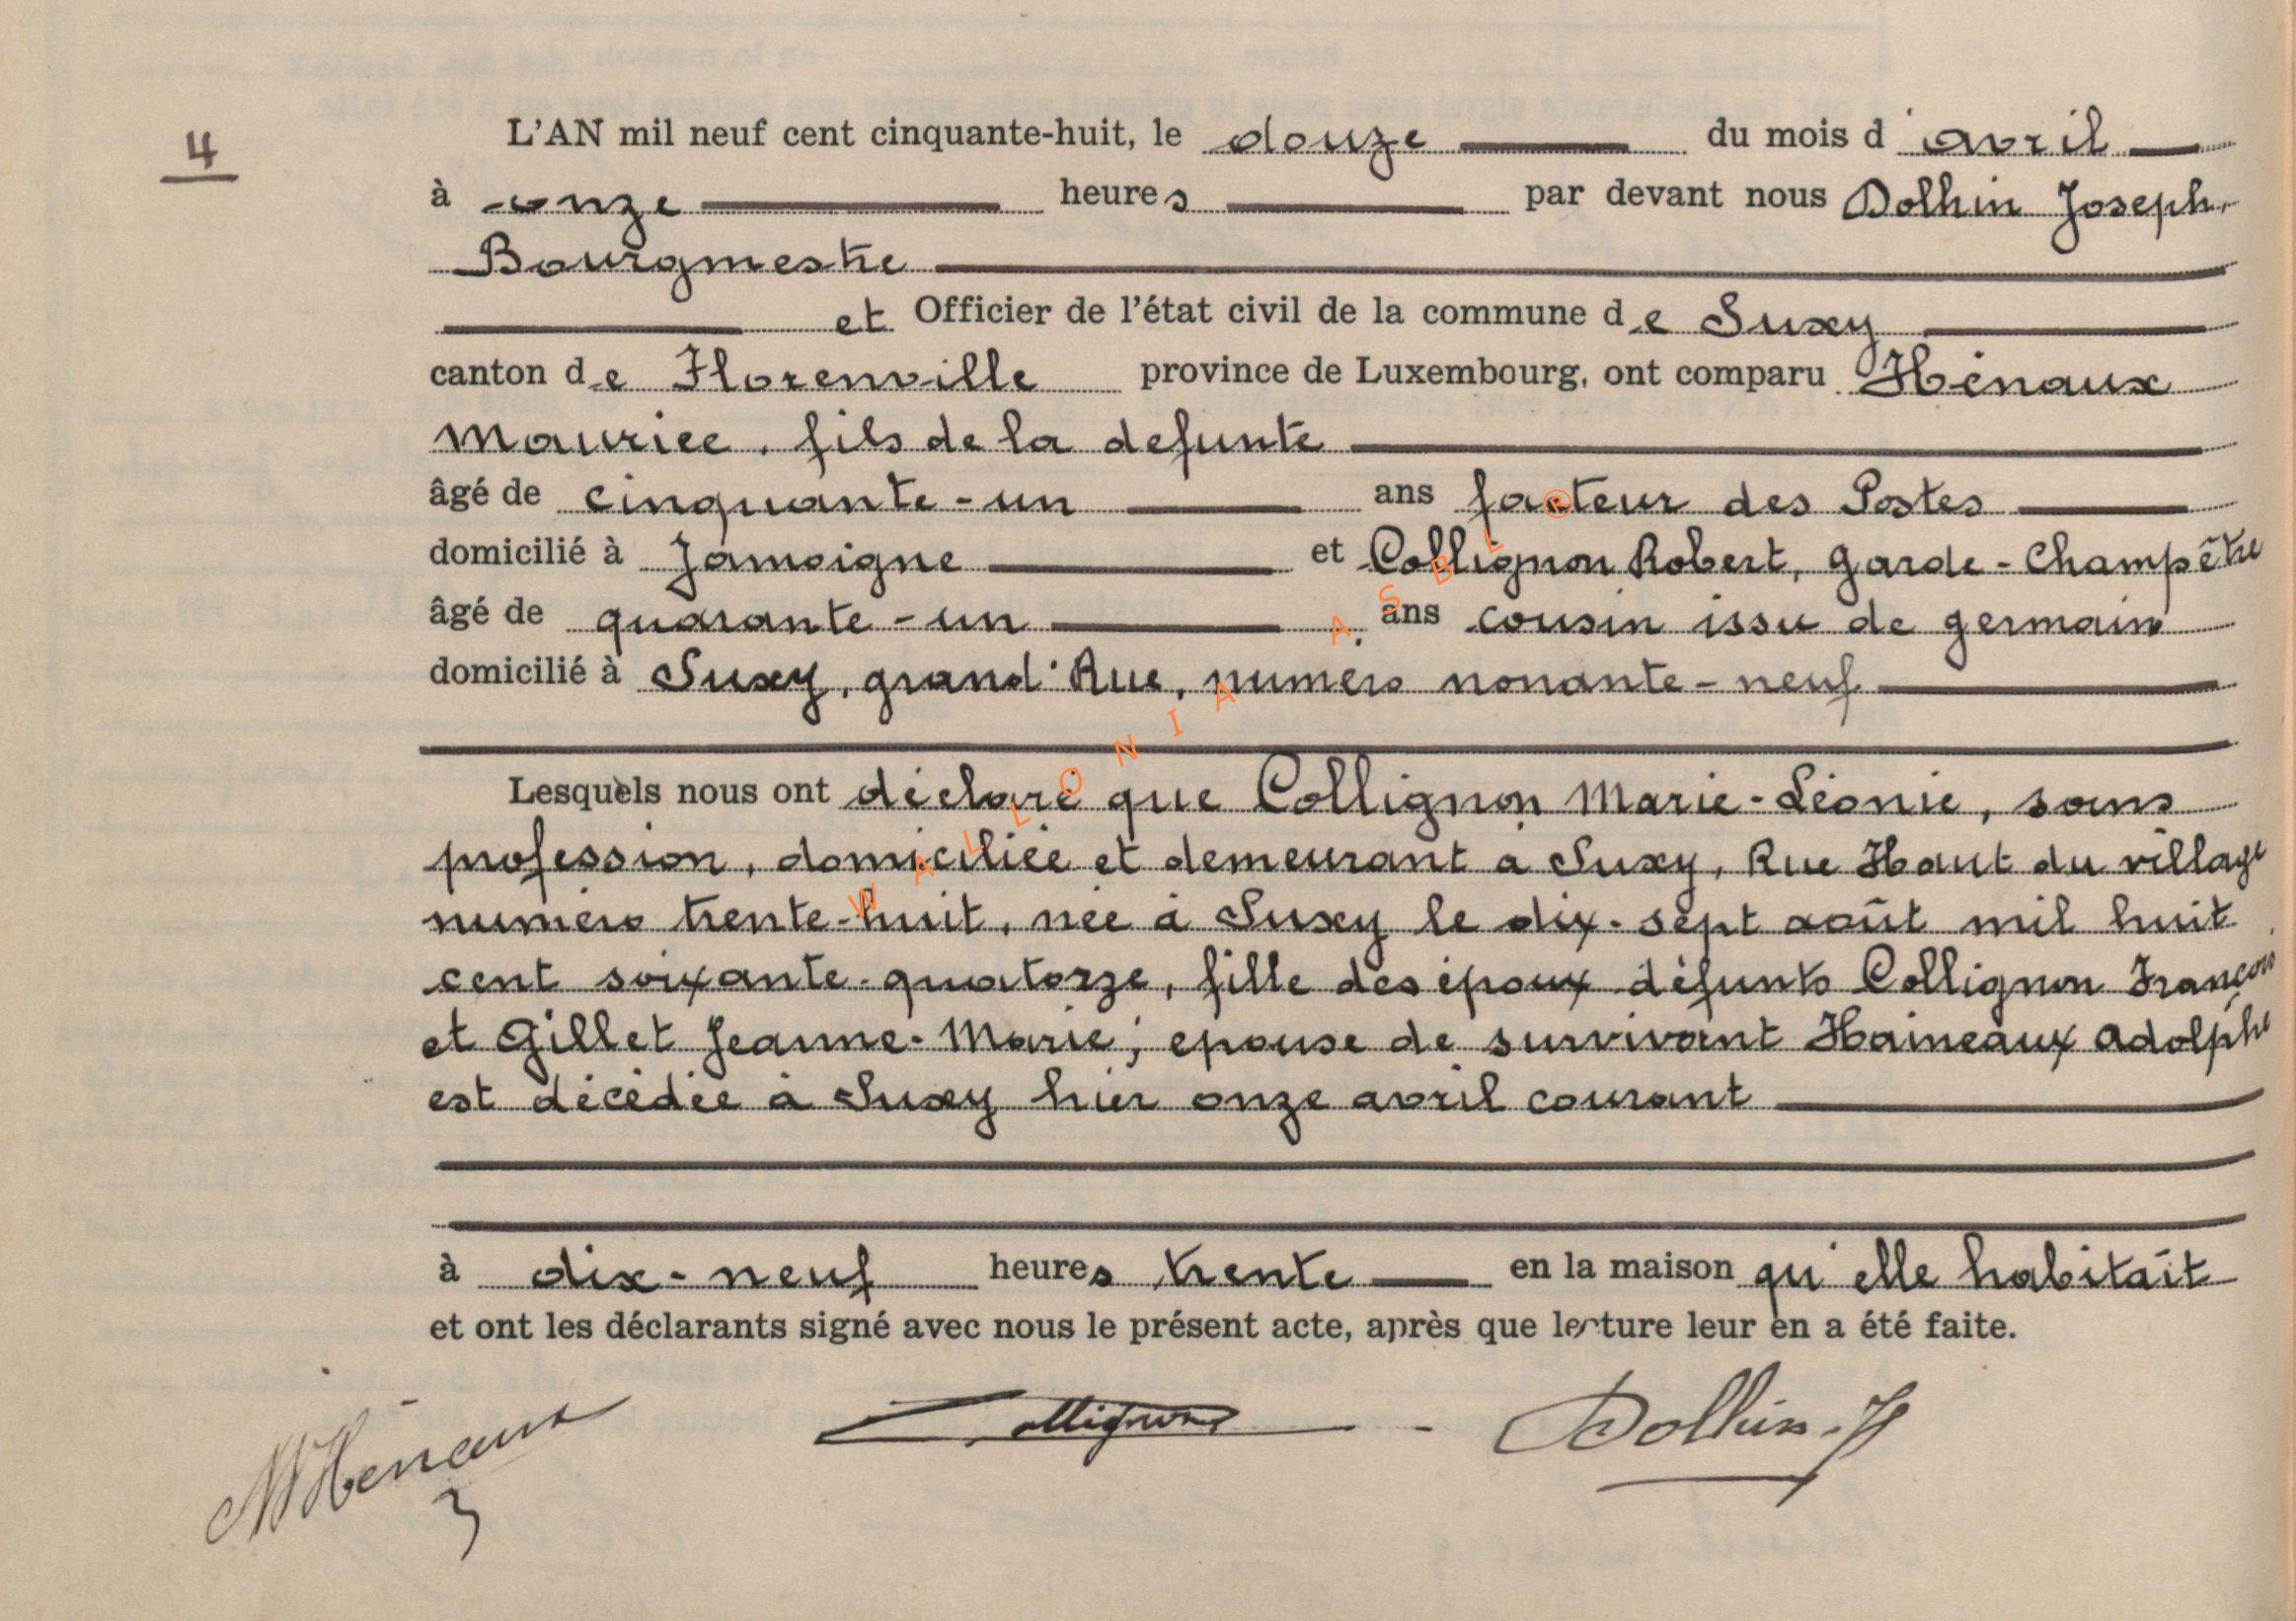 4
L'AN mil neuf cent cinquante-huit, le douze du mois d'avril
à onze heures par devant nous Dolhin Joseph,
Bourgmestre
et Officier de l'état civil de la commune de Suxy
canton de Florenville province de Luxembourg, ont comparu Hénaux
Maurice, fils de la défunte
âgé de cinquante-un ans facteur des Postes
domicilié à Jamoigne et Collignon Robert, Garde-Champêtre
âgé de quarante-un ans cousin issu de germain
domicilié à Suxy, grand'Rue, numéro nonante-neuf
Lesquels nous ont déclaré que Collignon Marie-Léonie, sans
profession, domiciliée et demeurant à Suxy, Rue Haut du village
numéro trente-huit, née à Suxy le dix-sept août mil huit
cent soixante-quatorze, fille des époux défunts Collignon François
et Gillet Jeanne-Marie; épouse de survivant Haineaux Adolphe
est décédée à Suxy hier onze avril courant
à dix-neuf heures trente en la maison qu'elle habitait
et ont les déclarants signé avec nous le présent acte, après que lecture leur en a été faite.
MHénaux Collignon Dolhin-J
WALLONIA ASBL ®